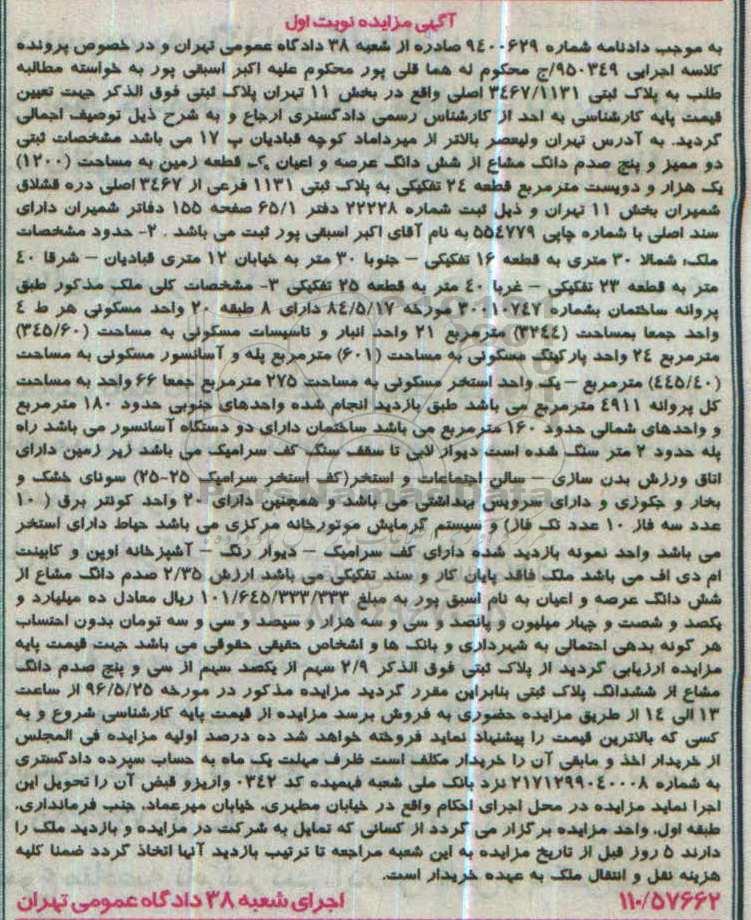 آگهی مزایده نوبت اول
به موجب دادنامه شماره ۹۴۰۰۶۲۹ صادره از شعبه ۳۸ دادگاه عمومی تهران و در خصوص پرونده
کلاسه اجرایی ۹۵۰۳۴۹/ج محکوم له هما قلی پور محکوم علیه اکبر اسبقی پور به خواسته مطالبه
طلب به پلاک ثبتی ۳۴۶۷/۱۱۳۱ اصلی واقع در بخش ۱۱ تهران پلاک ثبتی فوق الذکر جهت تعیین
قیمت پایه کارشناسی به احد از کارشناس رسمی دادگستری ارجاع و به شرح ذیل توصیف اجمالی
گردید. به آدرس تهران ولیعصر بالاتر از میرداماد کوچه قبادیان پ ۱۷ می باشد مشخصات ثبتی
دو ممیز و پنج صدم دانگ مشاع از شش دانگ عرصه و اعیان یک قطعه زمین به مساحت (۱۲۰۰)
یک هزار و دویست مترمربع قطعه ۲۴ تفکیکی به پلاک ثبتی ۱۱۳۱ فرعی از ۳۴۶۷ اصلی دره قشلاق
شمیران بخش ۱۱ تهران و ذیل ثبت شماره ۲۲۲۲۸ دفتر ۶۵/۱ صفحه ۱۵۵ دفاتر شمیران دارای
سند اصلی با شماره چاپی ۵۵۴۷۷۹ به نام آقای اکبر اسبقی پور ثبت می باشد . ۲- حدود مشخصات
ملک: شمالا ۳۰ متری به قطعه ۱۶ تفکیکی – جنوبا ۳۰ متر به خیابان ۱۲ متری قبادیان – شرقا ۴۰
متر به قطعه ۲۳ تفکیکی – غربا ۴۰ متر به قطعه ۲۵ تفکیکی ۳- مشخصات کلی ملک مذکور طبق
پروانه ساختمان بشماره ۳۰۰۱۰۷۴۷ مورخه ۸۴/۵/۱۷ دارای ۸ طبقه ۲۰ واحد مسکونی هر ط ۴
واحد جمعا بمساحت (۳۲۴۴) مترمربع ۲۱ واحد انبار و تاسیسات مسکونی به مساحت (۳۴۵/۶۰)
مترمربع ۲۴ واحد پارکینگ مسکونی به مساحت (۶۰۱) مترمربع پله و آسانسور مسکونی به مساحت
(۴۴۵/۴۰) مترمربع – یک واحد استخر مسکونی به مساحت ۲۷۵ مترمربع جمعا ۶۶ واحد به مساحت
کل پروانه ۴۹۱۱ مترمربع می باشد طبق بازدید انجام شده واحدهای جنوبی حدود ۱۸۰ مترمربع
و واحدهای شمالی حدود ۱۶۰ مترمربع می باشد ساختمان دارای دو دستگاه آسانسور می باشد راه
پله حدود ۲ متر سنگ شده است دیوار لابی تا سقف سنگ کف سرامیک می باشد زیر زمین دارای
اتاق ورزش بدن سازی – سالن اجتماعات و استخر(کف استخر سرامیک ۲۵-۲۵) سونای خشک و
بخار و جکوزی و دارای سرویس بهداشتی می باشد و همچنین دارای ۲۰ واحد کونتر برق ( ۱۰
عدد سه فاز، ۱۰ عدد تک فاز) و سیستم گرمایش موتورخانه مرکزی می باشد حیاط دارای استخر
می باشد واحد نمونه بازدید شده دارای کف سرامیک – دیوار رنگ – آشپزخانه اوپن و کابینت
ام دی اف می باشد ملک فاقد پایان کار و سند تفکیکی می باشد ارزش ۲/۳۵ صدم دانگ مشاع از
شش دانگ عرصه و اعیان به نام اسبق پور به مبلغ ۱۰۱/۶۴۵/۳۳۳/۳۳۳ ریال معادل ده میلیارد و
یکصد و شصت و چهار میلیون و پانصد و سی و سه هزار و سیصد و سی و سه تومان بدون احتساب
هر گونه بدهی احتمالی به شهرداری و بانک ها و اشخاص حقیقی حقوقی می باشد جهت قیمت پایه
مزایده ارزیابی گردید از پلاک ثبتی فوق الذکر ۲/۹ سهم از یکصد سهم از سی و پنج صدم دانگ
مشاع از ششدانگ پلاک ثبتی بنابراین مقرر گردید مزایده مذکور در مورخه ۹۶/۵/۲۵ از ساعت
۱۳ الی ۱۴ از طریق مزایده حضوری به فروش برسد مزایده از قیمت پایه کارشناسی شروع و به
کسی که بالاترین قیمت را پیشنهاد نماید فروخته خواهد شد ده درصد اولیه مزایده فی المجلس
از خریدار اخذ و مابقی آن را خریدار مکلف است ظرف مهلت یک ماه به حساب سپرده دادگستری
به شماره ۲۱۷۱۲۹۹۰۴۰۰۰۸ نزد بانک ملی شعبه فهمیده کد ۰۳۴۲ واریزو قبض آن را تحویل این
اجرا نماید مزایده در محل اجرای احکام واقع در خیابان مطهری، خیابان میرعماد، جنب فرمانداری،
طبقه اول، واحد مزایده برگزار می گردد از کسانی که تمایل به شرکت در مزایده و بازدید ملک را
دارند ۵ روز قبل از تاریخ مزایده به این شعبه مراجعه تا ترتیب بازدید آنها اتخاذ گردد ضمنا کلیه
هزینه نقل و انتقال ملک به عهده خریدار است.
۱۱۰/۵۷۶۶۲ اجرای شعبه ۳۸ دادگاه عمومی تهران